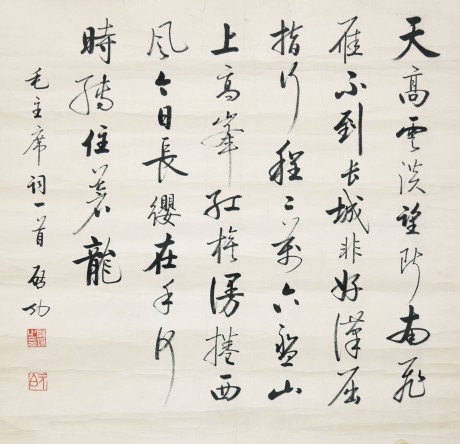 天高雲淡望断南飛
雁不到长城非好漢屈
指行程二萬六盤山
上高峯紅旗漫捲西
風今日長纓在手何
時縛住蒼龍
毛主席詞一首 啟功